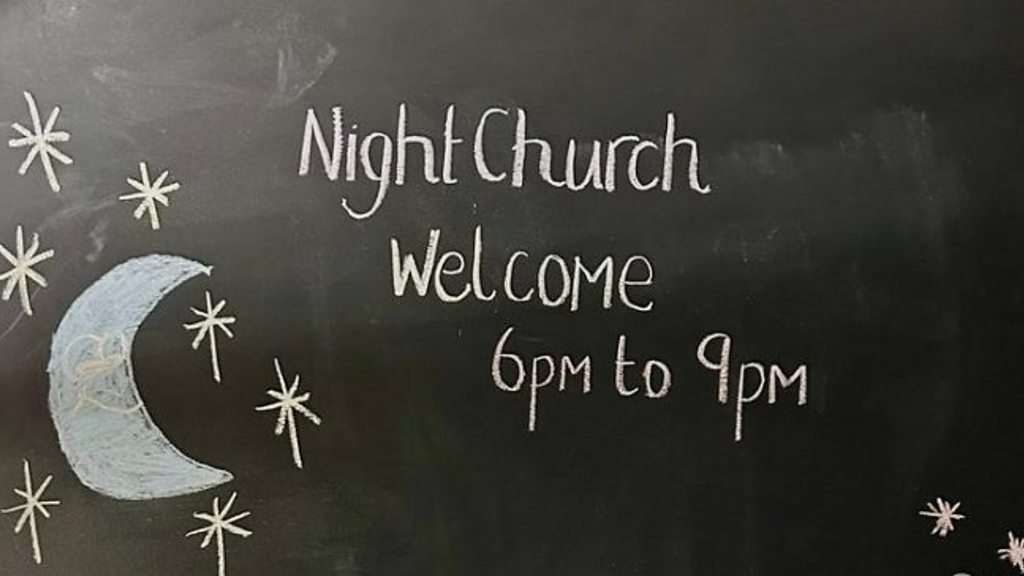 Night Church
Welcome
6pm to 9pm